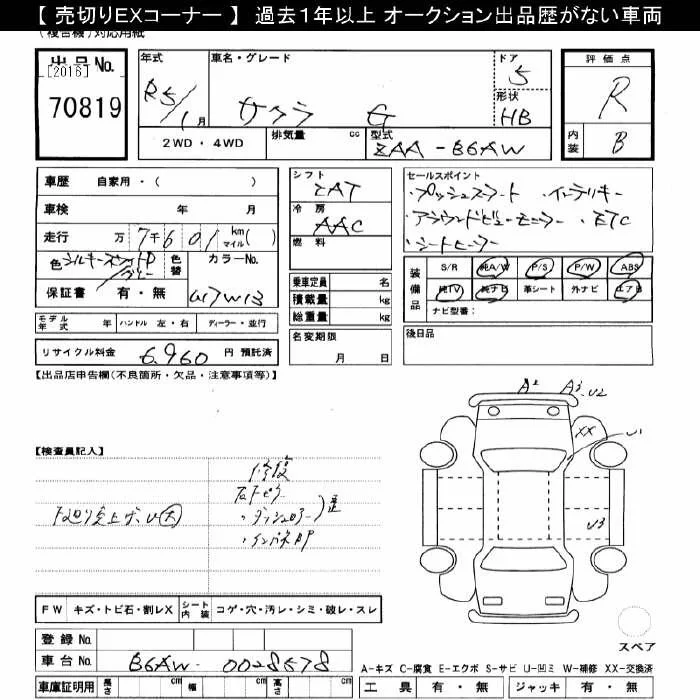 【 売切りEXコーナー 】 過去1年以上 オークション出品歴がない車両
(複合機)対応用紙
出品No.
[2016]
70819
年式
R5/1月
車名・グレード
サクラ G
ドア
5
形状
HB
評価点
R
内装
B
2WD・4WD
排気量 cc
型式
ZAA-B6AW
車歴 自家用・( )
車検 年 月
走行 万 7千601 km マイル( )
色
色替
カラーNo.
保証書 有・無
シフト
冷房
AAC
燃料
乗車定員 名
積載量 kg
総重量 kg
名変期限
月 日
セールスポイント
・プッシュスタート ・インテリキー
・アラウンドビューモニター ・ETC
・シートヒーター
装備品
S/R 純A/W P/S P/W ABS
純TV 純ナビ 革シート 外ナビ エアB
ナビ型番:
後日品
モデル年式 年 ハンドル 左・右 ディーラー・並行
リサイクル料金 6,960 円 預託済
【出品店申告欄(不良箇所・欠品・注意事項等)】
【検査員記入】
修復
・インパネ
A2 A3 U2
XX
U1
U3
FW キズ・トビ石・割レX
シート内装 コゲ・穴・汚レ・シミ・破レ・スレ
登録No.
車台No. B6AW-0028578
車庫証明用 長さ cm 幅 cm 高さ cm
スペア
A-キズ C-腐食 E-エクボ S-サビ U-凹ミ W-補修 XX-交換済
工具 有・無 ジャッキ 有・無